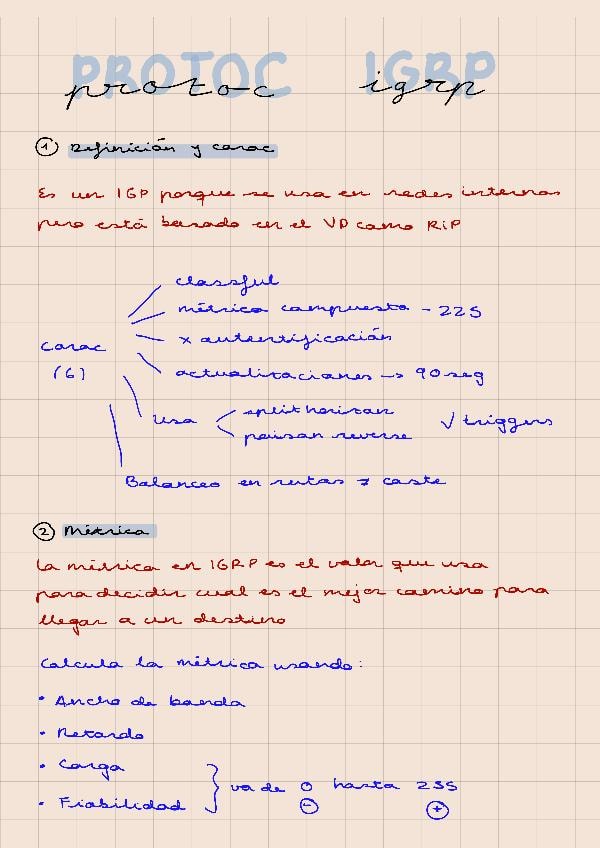 PROTOC IGRP
protoc igrp
1 Definición y carac
Es un IGP porque se usa en redes internas
pero está basado en el VD como RIP
carac
(6)
classful
métrica compuesta - 225
x autentificación
actualizaciones -> 90 seg
usa
split horizon
poison reverse
√ triggers
Balanceo en rutas ≠ coste
2 Métrica
La métrica en IGRP es el valor que usa
para decidir cual es el mejor camino para
llegar a un destino
Calcula la métrica usando:
• Ancho de banda
• Retardo
• Carga
• Fiabilidad
} va de 0 hasta 255
- +